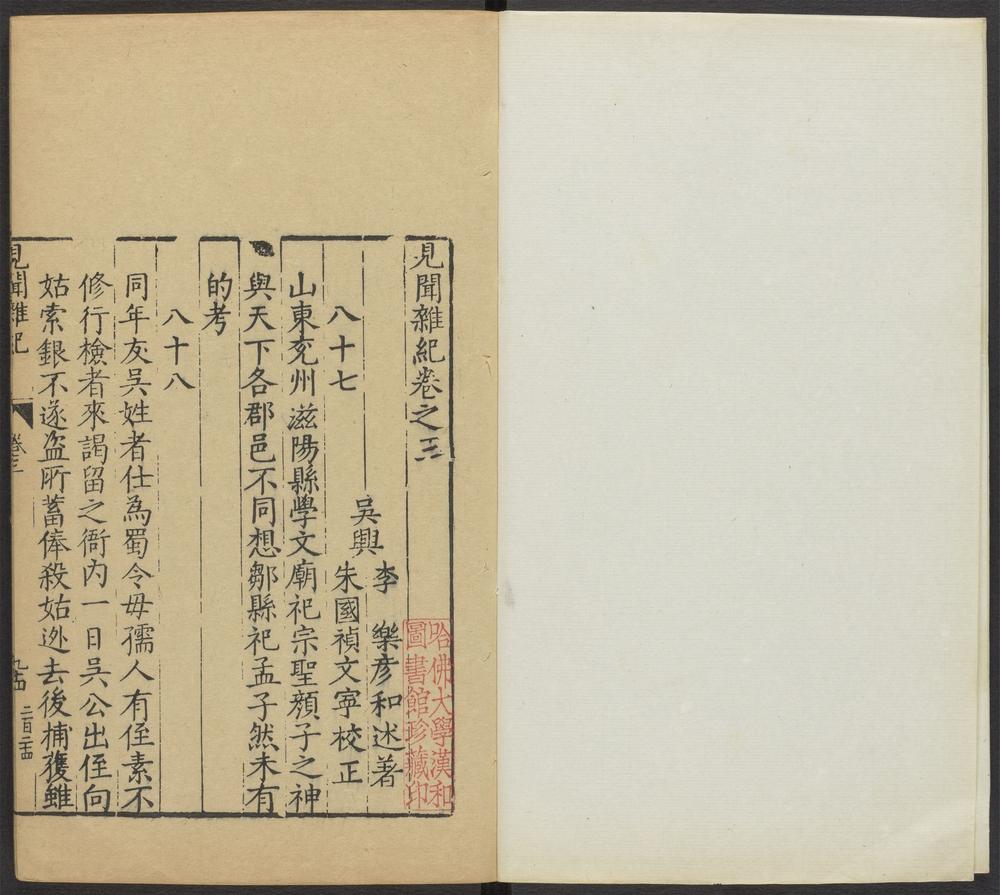 見聞雜紀卷之三
吳興
李 樂彦和述著
朱國禎文寧校正
八十七
山東兖州滋陽縣學文廟祀宗聖顏子之神
與天下各郡邑不同想鄒縣祀孟子然未有
的考
八十八
同年友吳姓者仕為蜀令母孺人有侄素不
修行檢者來謁留之衙內一日吳公出侄向
姑索銀不遂盜所蓄俸殺姑迯去後捕獲雖
見聞雜紀
卷三
二百二十四
哈佛大學漢和
圖書館珍藏印